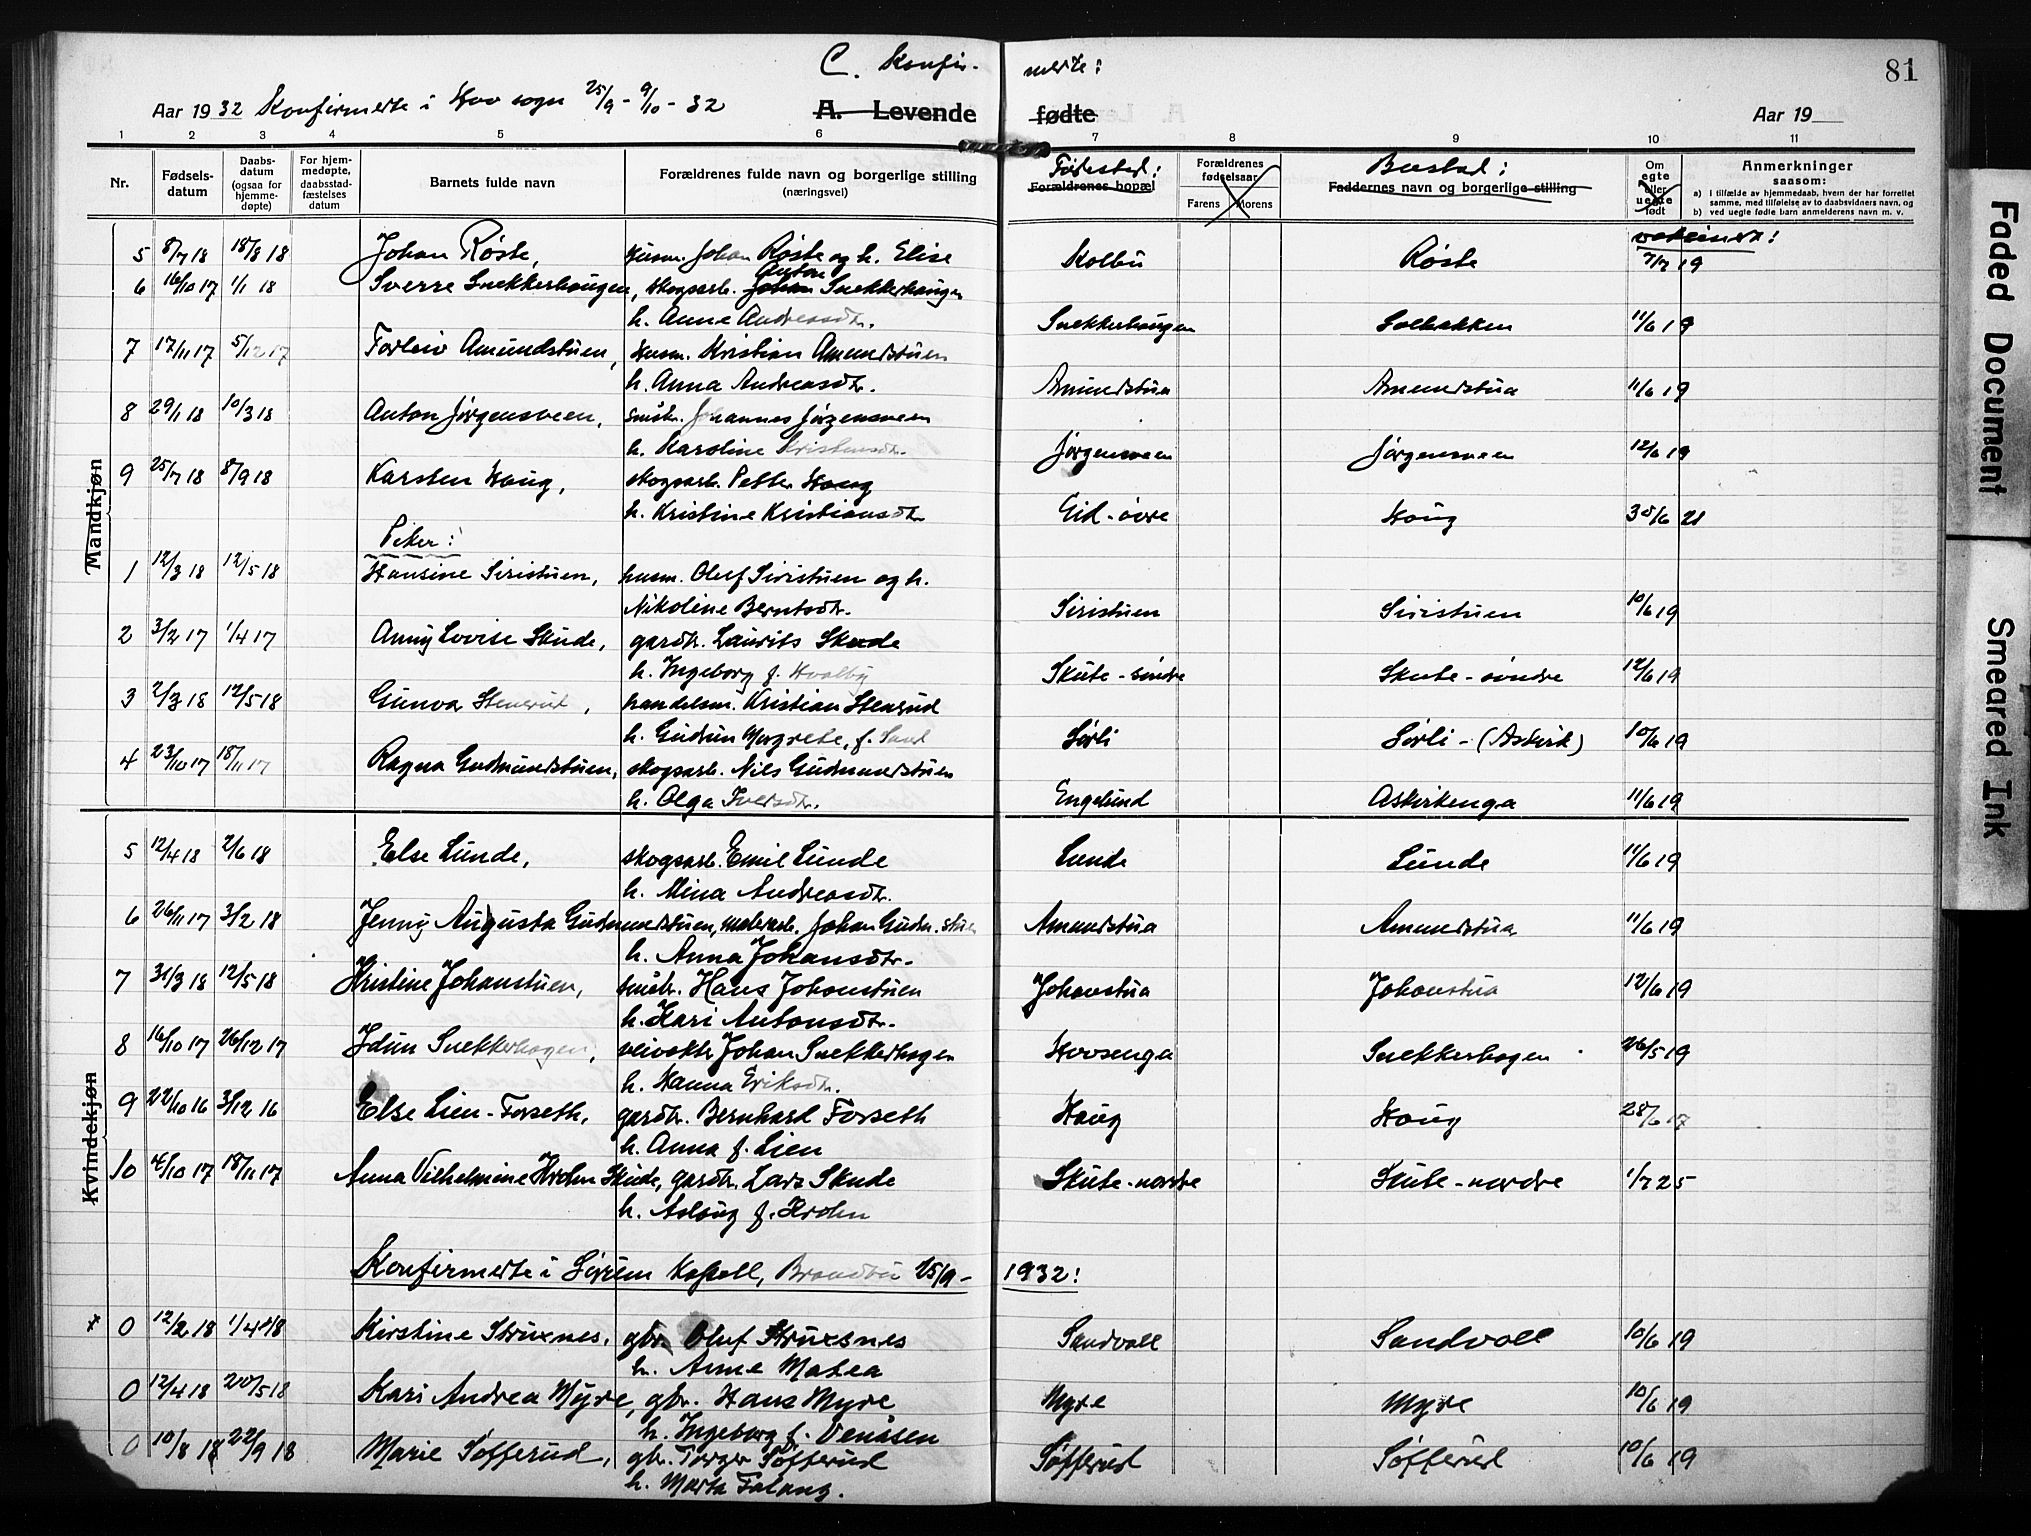 C. Konfir- merte: 81
Aar 1932 Konfirmerte i Hov sogn 25/9 - 9/10 - 32 A. Levende fødte Aar 19
1 2 3 4 5 6 7 8 9 10 11
Nr. Fødsels-datum Daabs-datum (ogsaa for hjemme-døpte) For hjem-medøpte, daabsstad-fæstelses datum Barnets fulde navn Forældrenes fulde navn og borgerlige stilling (næringsvei) Fødested: Forældrenes bopæl Forældrenes fødselsaar Farens Morens Bustad: Faddernes navn og borgerlige stilling Om egte eller uegte født Anmerkninger saasom:
a) I tilfælde av hjemmedaab, hvem der har forrettet samme, med tilføielse av to daabsvidners navn, og
b) ved uegte fødte barn anmelderens navn m. v.
vaksinert:
5 8/7 18 18/8 18 Johan Røste, husm. Johan Røste og h. Elise Kolbu Røste 7/7 19
6 16/10 17 1/1 18 Sverre Snekkerhaugen, skogsarb. Johan Anton Snekkerhaugen
h. Anne Andreasdtr. Snekkerhaugen Solbakken 11/6 19
7 17/11 17 5/12 17 Torleiv Amundstuen, husm. Kristian Amundstuen
h. Anna Andreasdtr. Amundstua Amundstua 11/6 19
8 29/1 18 10/3 18 Anton Jørgensveen, småbr. Johannes Jørgensveen
h. Karoline Kristensdtr. Jørgensveen Jørgensveen 12/6 19
Mandkjøn
9 25/7 18 8/9 18 Karsten Haug, skogsarb. Petter Haug
h. Kristine Kristiansdtr. Eid-øvre Haug 30/6 21
Piker:
1 12/3 18 12/5 18 Hansine Siristuen, husm. Oluf Siristuen og h.
Nikoline Berntsdtr. Siristuen Siristuen 10/6 19
2 3/2 17 1/4 17 Anny Lovise Skude, gardbr. Laurits Skude
h. Ingeborg f. Hvalby Skute-søndre Skute-søndre 12/6 19
3 2/3 18 12/5 18 Gunvor Stenerud, handelsm. Kristian Stenrud
h. Gudrun Margrete, f. Sand Sørli Sørli - (Askirk) 10/6 19
4 23/10 17 18/11 17 Ragna Gudmundstuen, skogsarb. Nils Gudmundstuen
h. Olga Iversdtr. Engelund Askirkenga 11/6 19
5 12/4 18 2/6 18 Else Lunde, skogsarb. Emil Lunde Lunde Lunde 11/6 19
h. Mina Andreasdtr.
6 26/11 17 3/2 18 Jenny Augusta Gudmundstuen, malerarb. Johan Gudm.stuen Amundstua Amundstua 11/6 19
h. Anna Johansdtr.
7 31/3 18 12/5 18 Kristine Johanstuen, småbr. Hans Johanstuen Johanstua Johanstua 12/6 19
h. Kari Antonsdtr.
8 16/10 17 26/12 17 Idun Snekkerhagen, veivokter Johan Snekkerhagen Hovsenga Snekkerhagen 26/5 19
h. Hanna Eriksdtr.
Kvindekjøn
9 22/10 16 3/12 16 Else Lien-Forseth, gardbr. Bernhard Forseth Haug Haug 28/6 17
h. Anna f. Lien
10 4/10 17 18/11 17 Anna Vilhelmine Krohn Skude, gardbr. Lars Skude Skute-nordre Skute-nordre 1/7 25
h. Aslaug f. Krohn
Konfirmerte i Sørum Kapell, Brandbu 25/9 - 1932!
0 12/2 18 1/4 18 Kirstine Struxnes, gbr. Oluf Struxsnes Sandvoll Sandvoll 10/6 19
h. Anne Matea
0 12/4 18 20/5 18 Kari Andrea Myre, gbr. Hans Myre Myre Myre 10/6 19
h. Ingeborg f. Venåsen
0 10/8 18 22/9 18 Marie Søfferud, gbr. Torger Søfferud Søfferud Søfferud 10/6 19
h. Marta Falang.
Faded Document
Smeared Ink